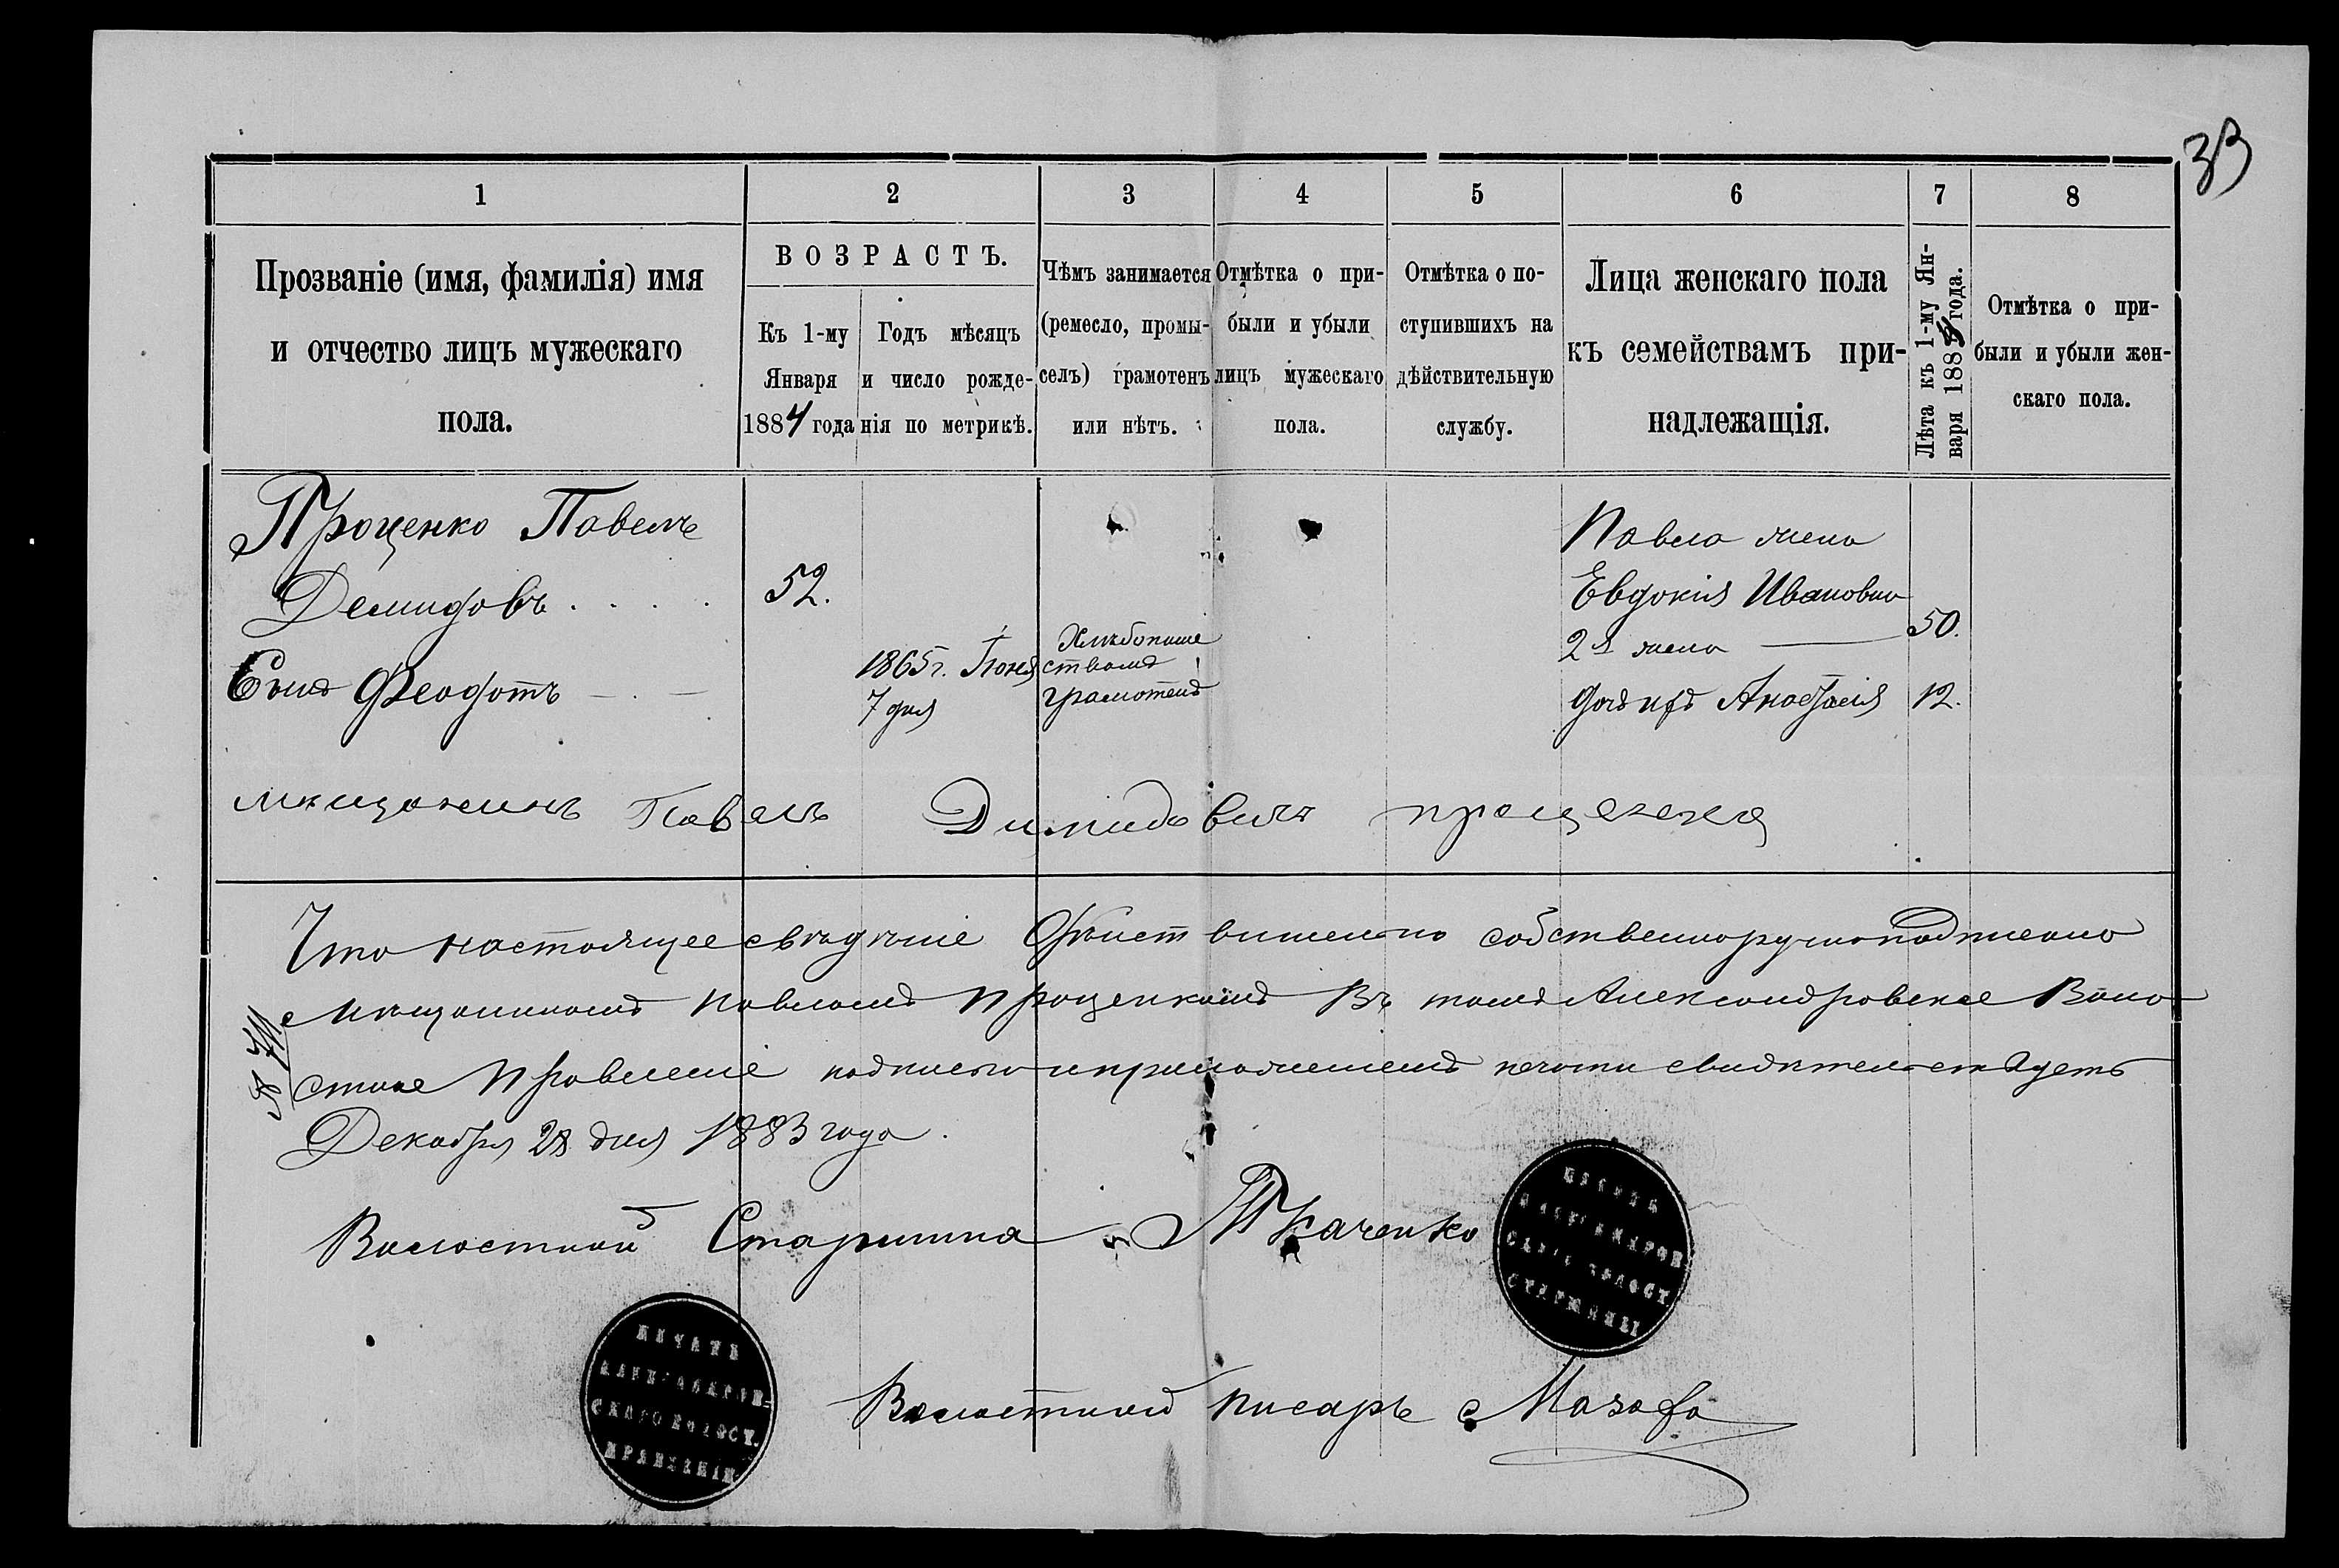 33
1 2 3 4 5 6 7 8
Прозваніе (имя, фамилія) имя
и отчество лицъ мужескаго
пола.
ВОЗРАСТЪ.
Къ 1-му
Января
1884 года
Годъ мѣсяцъ
и число рожде-
нія по метрикѣ.
Чѣмъ занимается
(ремесло, промы-
селъ) грамотенъ
или нѣтъ.
Отмѣтка о при-
были и убыли
лицъ мужескаго
пола.
Отмѣтка о по-
ступившихъ на
дѣйствительную
службу.
Лица женскаго пола
къ семействамъ при-
надлежащія.
Лѣта къ 1-му Ян-
варя 1884 года.
Отмѣтка о при-
были и убыли жен-
скаго пола.
Проценко Павелъ
Демидовъ . . . .
52.
Его сынъ Феодотъ
1865 г. Іюня
7 дня
Хлѣбопаше
ствомъ
грамотенъ
Павла жена
Евдокія Иванова
2я жена
50.
дочь ихъ Анастасія
12.
мещанинъ Павелъ Димидовичъ проценко
Что настоящее свѣдѣніе дѣйствительно собственноручно подписано
мѣщаниномъ Павломъ Проценкомъ въ томъ Александровское Воло
стное Правленіе подписью и приложеніемъ печати свидѣтельствуетъ
Декабря 28 дня 1883 года.
№ 711
Волостной Старшина Ткаченко
ПЕЧАТЬ
АЛЕКСАНДРОВ
СКАГО ВОЛОСТ.
СТАРШИНЫ
ПЕЧАТЬ
АЛЕКСАНДРОВ=
СКАГО ВОЛОСТ.
ПРАВЛЕНІЯ
Волостной писарь